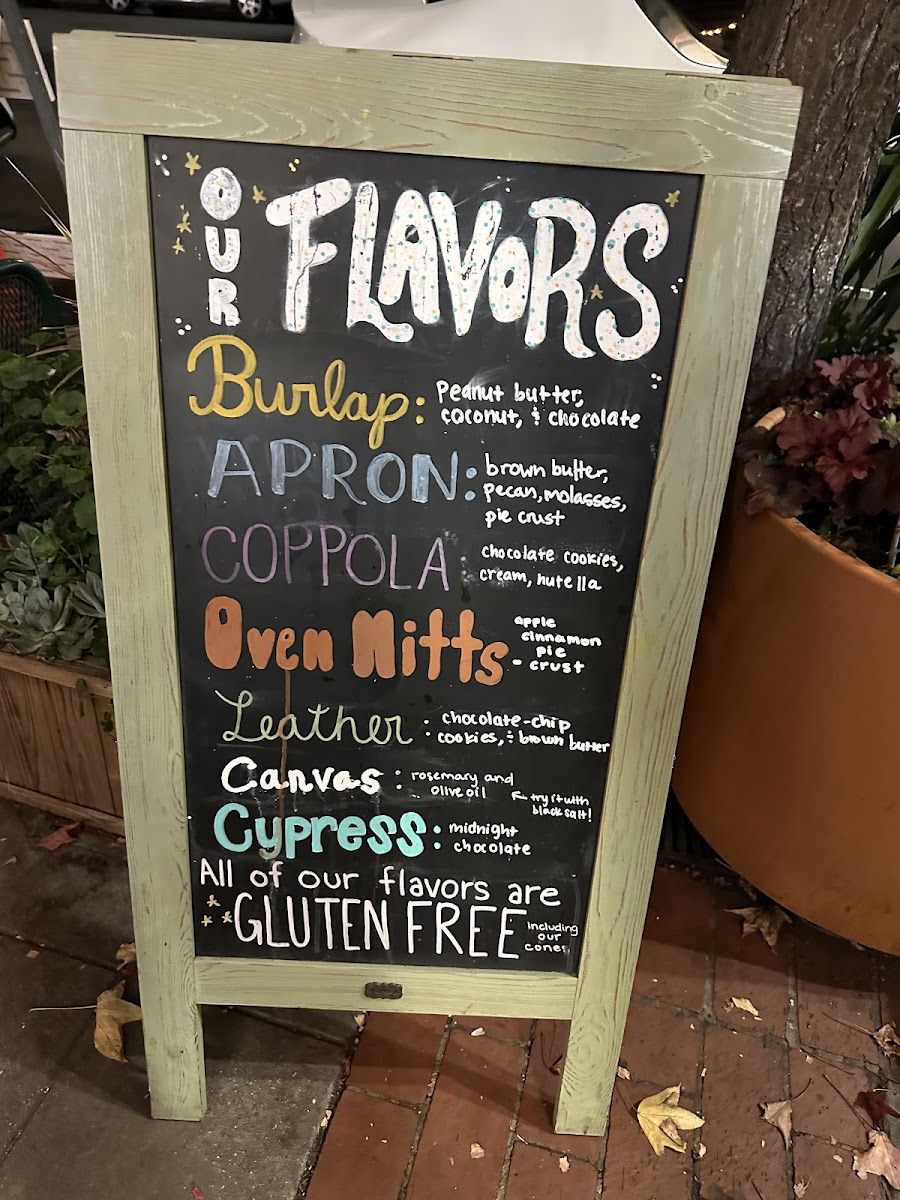 OUR FLAVORS
Burlap: Peanut butter,
coconut, & chocolate
APRON: brown butter,
pecan, molasses,
pie crust
COPPOLA : chocolate cookies,
cream, nutella
Oven Mitts - apple
cinnamon
pie
crust
Leather : chocolate-chip
cookies, & brown butter
Canvas : rosemary and
olive oil
← try it with
black salt!
Cypress : midnight
chocolate
All of our flavors are
GLUTEN FREE including
our
cones